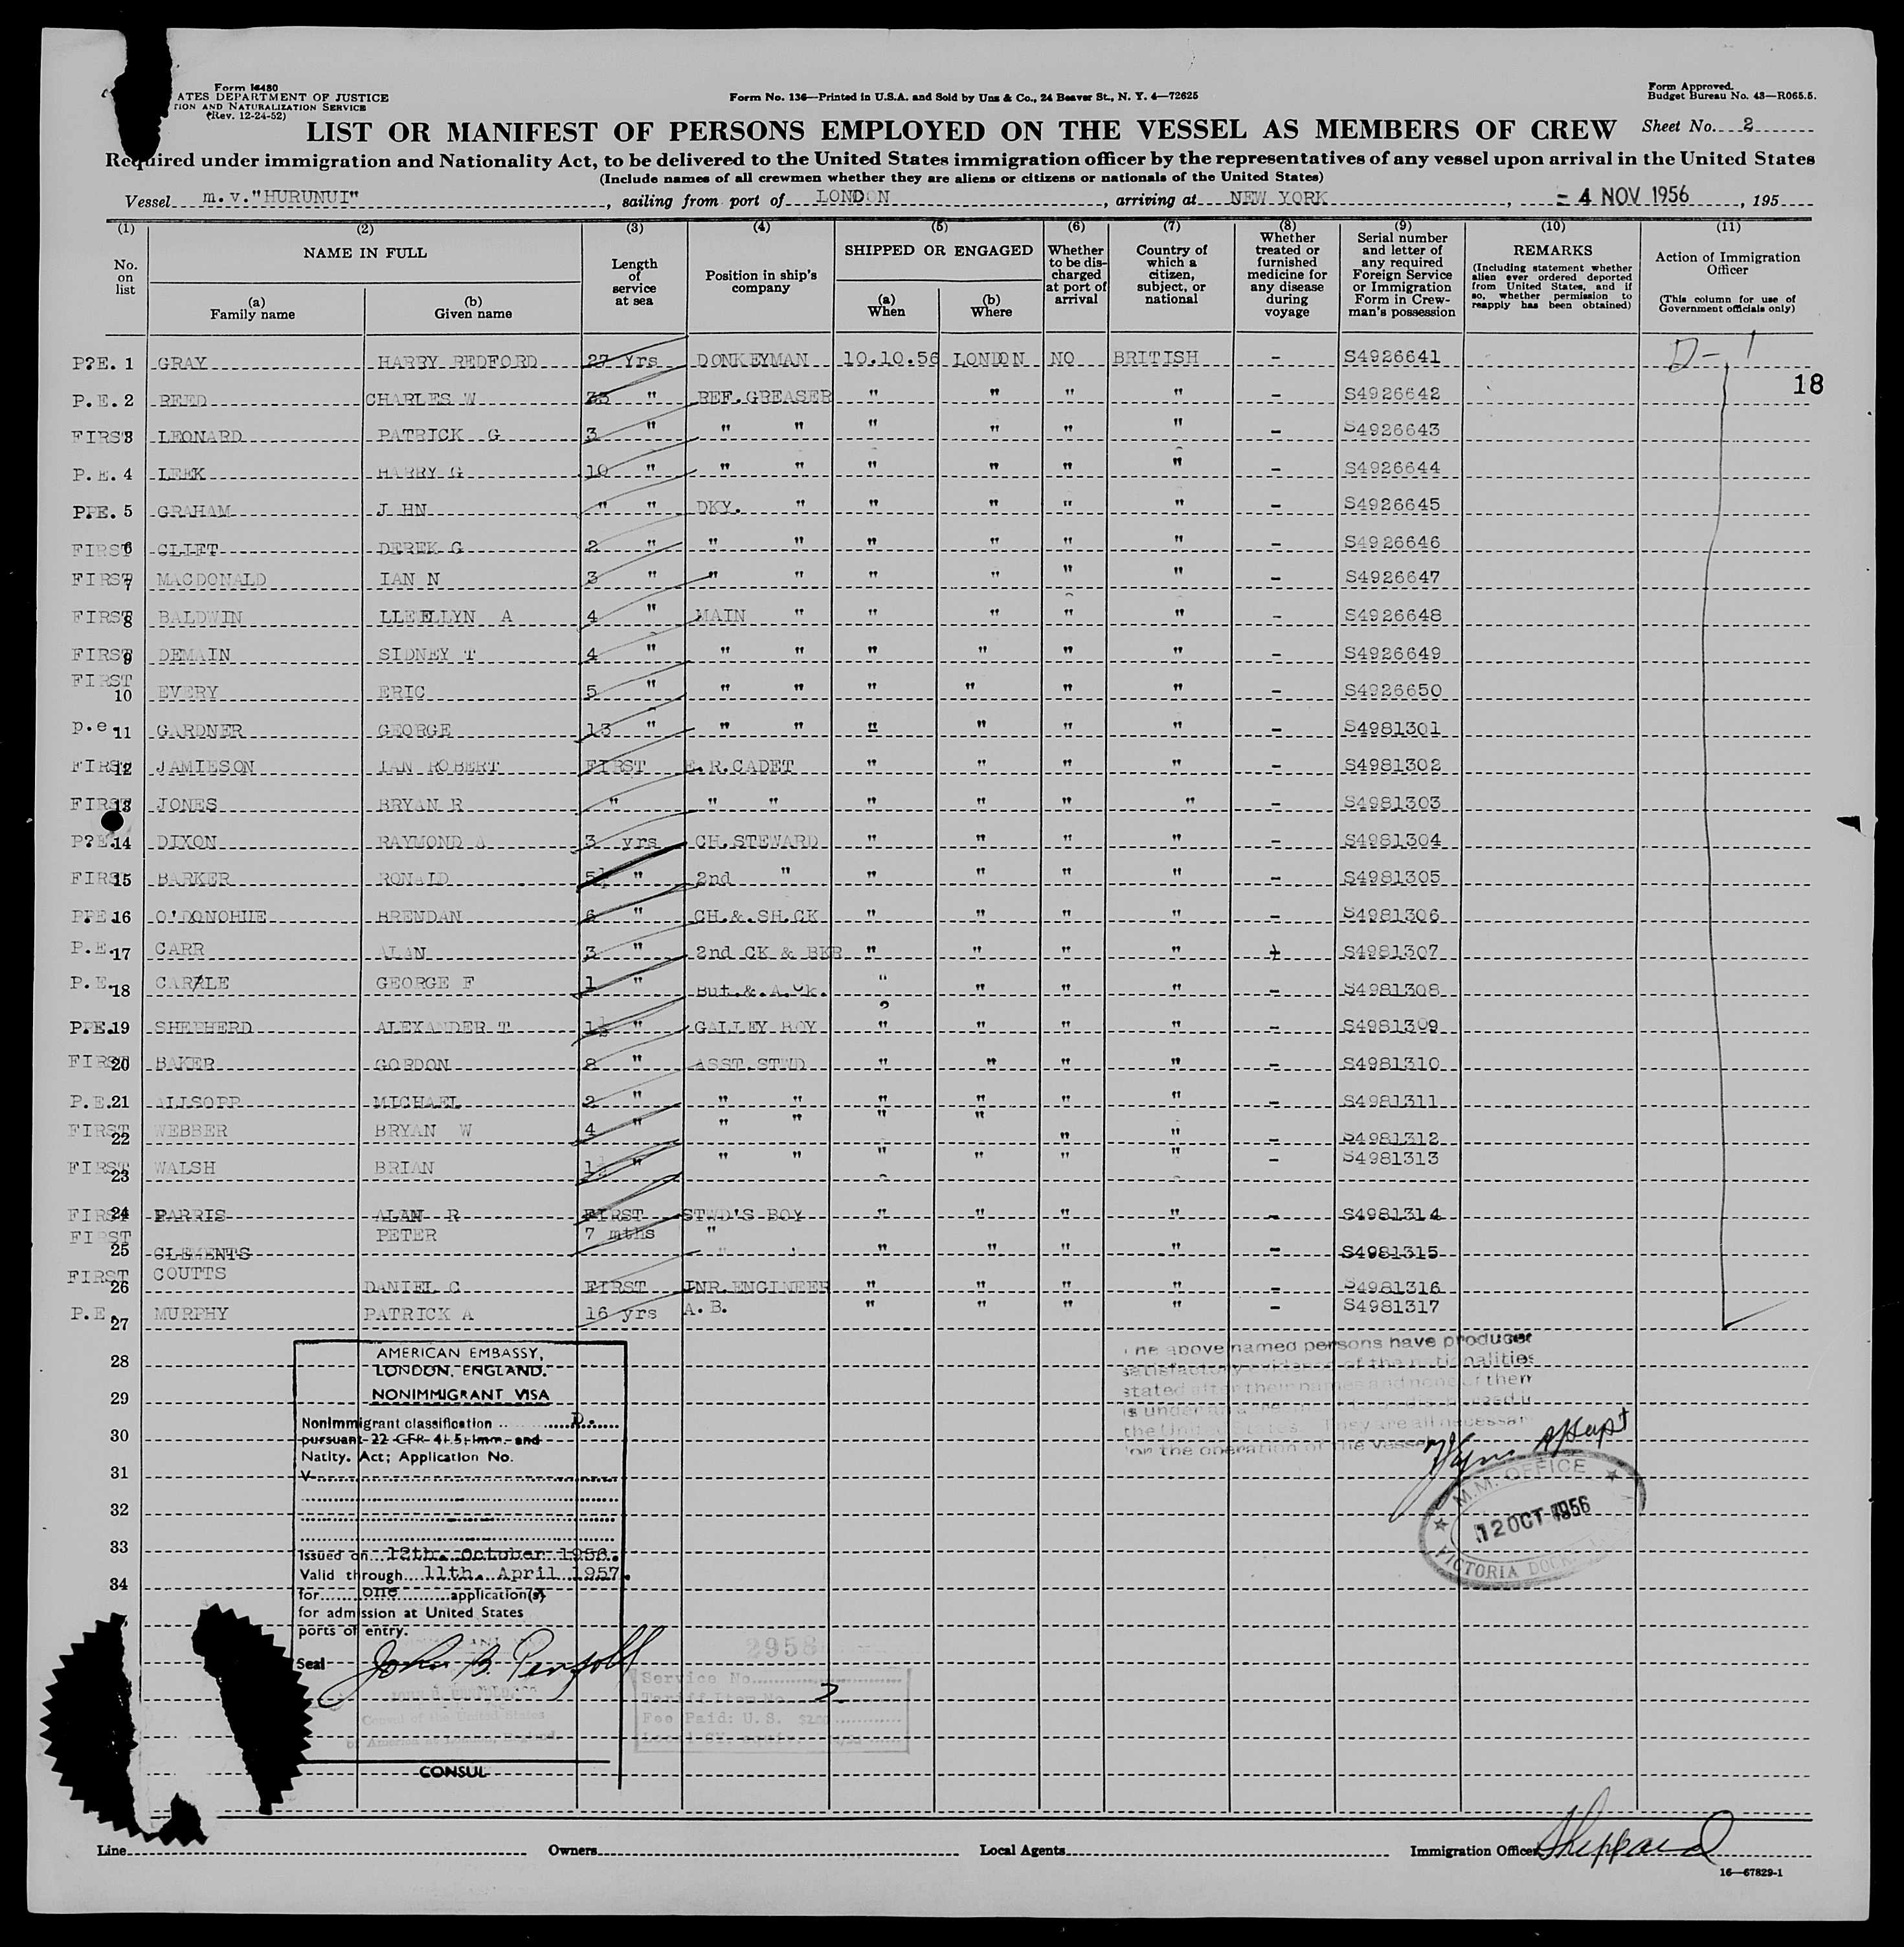 Form I-480
ATES DEPARTMENT OF JUSTICE
TION AND NATURALIZATION SERVICE
(Rev. 12-24-52)
Form No. 136—Printed in U.S.A. and Sold by Unz & Co., 24 Beaver St., N. Y. 4—72625
Form Approved.
Budget Bureau No. 43—R065.5.
LIST OR MANIFEST OF PERSONS EMPLOYED ON THE VESSEL AS MEMBERS OF CREW Sheet No. 2
Required under immigration and Nationality Act, to be delivered to the United States immigration officer by the representatives of any vessel upon arrival in the United States
(Include names of all crewmen whether they are aliens or citizens or nationals of the United States)
Vessel m.v."HURUNUI", sailing from port of LONDON, arriving at NEW YORK, - 4 NOV 1956, 195
(1) (2) (3) (4) (5) (6) (7) (8) (9) (10) (11)
No. on list
NAME IN FULL
(a) Family name
(b) Given name
Length of service at sea
Position in ship's company
SHIPPED OR ENGAGED
(a) When
(b) Where
Whether to be discharged at port of arrival
Country of which a citizen, subject, or national
Whether treated or furnished medicine for any disease during voyage
Serial number and letter of any required Foreign Service or Immigration Form in Crewman's possession
REMARKS
(Including statement whether alien ever ordered deported from United States, and if so, whether permission to reapply has been obtained)
Action of Immigration Officer
(This column for use of Government officials only)
P?E. 1 GRAY HARRY REDFORD 27 Yrs DONKEYMAN 10.10.56 LONDON NO BRITISH - S4926641 D-1
18
P.E. 2 REED CHARLES W 33 " REF.GREASER " " " " - S4926642
FIRST 3 LEONARD PATRICK G 3 " " " " " " " - S4926643
P.E. 4 LEEK HARRY G 10 " " " " " " " - S4926644
P.E. 5 GRAHAM J HN " " DKY. " " " " " - S4926645
FIRST 6 CLIFT DEREK G 2 " " " " " " " - S4926646
FIRST 7 MACDONALD IAN N 3 " " " " " " " - S4926647
FIRST 8 BALDWIN LLEELLYN A 4 " MAIN " " " " " - S4926648
FIRST 9 DEMAIN SIDNEY T 4 " " " " " " " - S4926649
FIRST 10 EVERY ERIC 5 " " " " " " " - S4926650
p.e. 11 GARDNER GEORGE 13 " " " " " " " - S4981301
FIRST 12 JAMIESON IAN ROBERT FIRST E.R.CADET " " " " - S4981302
FIRST 13 JONES BRYAN R " " " " " " " - S4981303
P?E. 14 DIXON RAYMOND A 3 yrs CH.STEWARD " " " " - S4981304
FIRST 15 BARKER RONALD 5½ " 2nd " " " " " - S4981305
P.E. 16 O'DONOHUE BRENDAN 6 " CH.&.SH.CK " " " " - S4981306
P.E. 17 CARR ALAN 3 " 2nd CK & BKR " " " " - S4981307
P.E. 18 CARRLE GEORGE F 1 " But.&.A.Ck. " " " " - S4981308
P.E. 19 SHEPHERD ALEXANDER T 1½ " GALLEY BOY " " " " - S4981309
FIRST 20 BAKER GORDON 8 " ASST.STWD " " " " - S4981310
P.E. 21 ALLSOPP MICHAEL 2 " " " " " " " - S4981311
FIRST 22 WEBBER BRYAN W 4 " " " " " " " - S4981312
FIRST 23 WALSH BRIAN 1½ " " " " " " " - S4981313
FIRST 24 PARRIS ALAN R FIRST STWD'S BOY " " " " - S4981314
FIRST 25 CLEMENTS PETER 7 mths " " " " " " - S4981315
FIRST 26 COUTTS DANIEL C FIRST JNR.ENGINEER " " " " - S4981316
P.E. 27 MURPHY PATRICK A 16 yrs A.B. " " " " - S4981317
28
29
30
31
32
33
34
AMERICAN EMBASSY,
LONDON, ENGLAND.
NONIMMIGRANT VISA
Nonimmigrant classification D.
pursuant 22 CFR 41.5; Imm. and
Natlty. Act; Application No.
V
Issued on 12th. October 1956.
Valid through 11th. April 1957.
for one application(s)
for admission at United States
ports of entry.
Seal John B. Penfold
Consul of the United States
of America at London, England
CONSUL
2958
Service No.
Tariff Item No. 2
Fee Paid: U. S. $2.00
The above named persons have produced
satisfactory evidence of the nationalities
stated after their names and none of them
is under an agreement to be discharged in
the United States. They are all necessary
for the operation of the vessel
M.M. OFFICE
12 OCT 1956
VICTORIA DOCK
Line
Owners
Local Agents
Immigration Officer Sheppard
16—67829-1